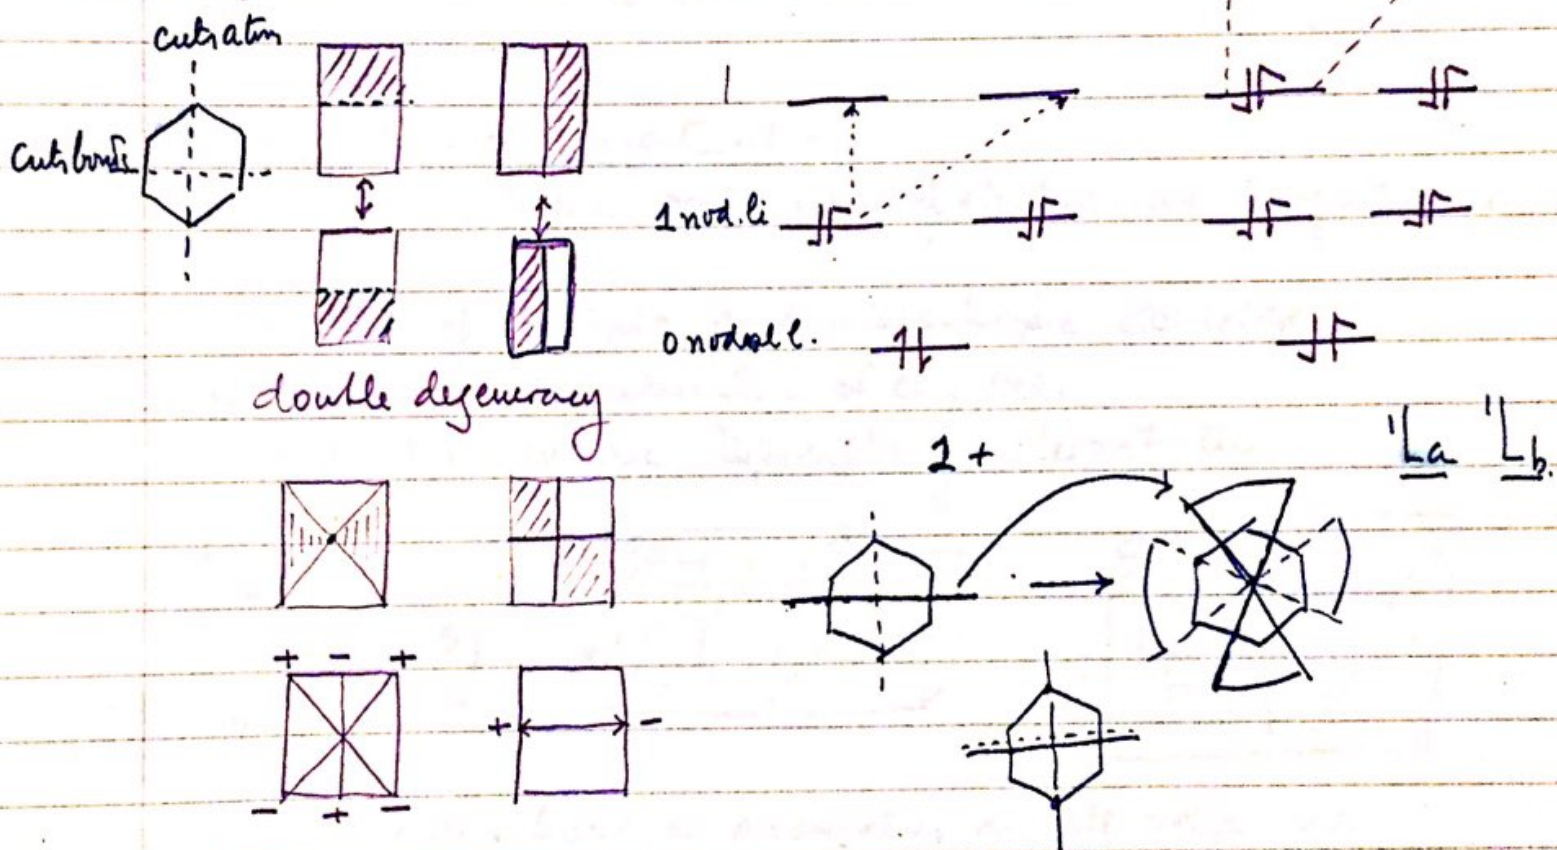 cuts atom
cuts bonds
1 nod. li
0 nodal l.
double degeneracy
1 +
¹La ¹Lb.
+ - +
+ -
- + -